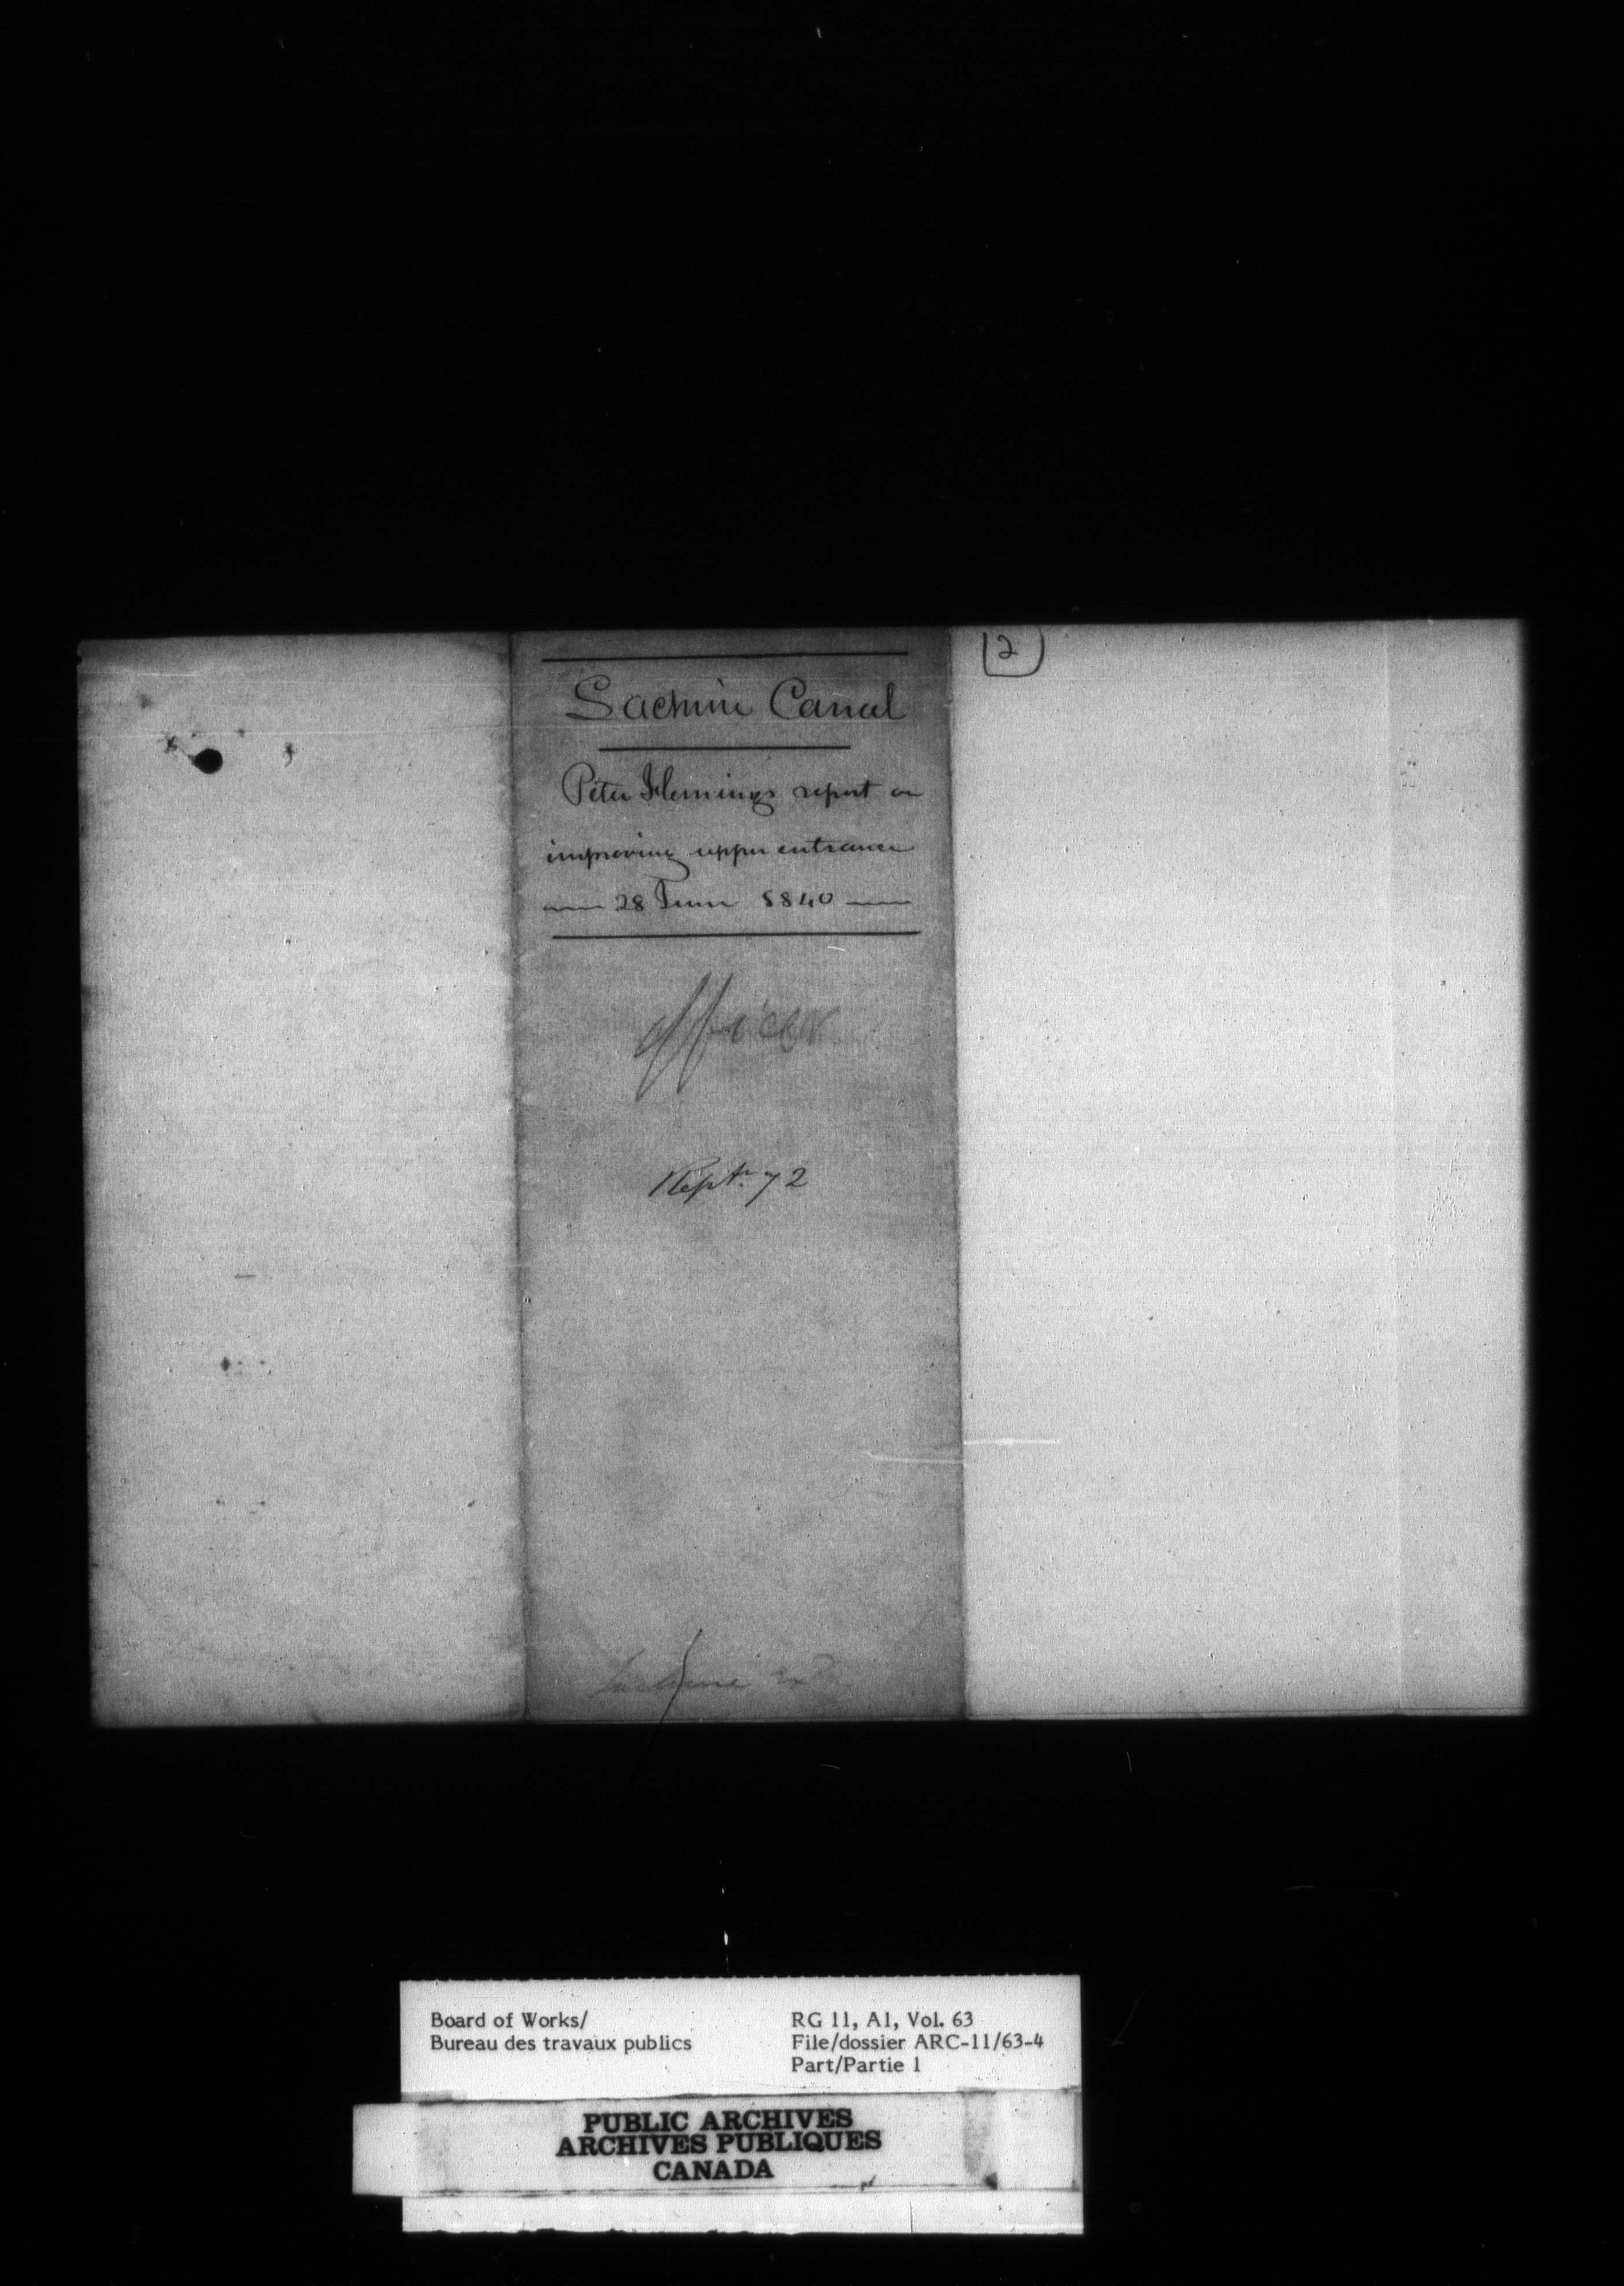 2
Lachine Canal
Peter Flemings report on
improving upper entrance
28 June 1840
Officer
Rept. 72
Lachine
Board of Works/
Bureau des travaux publics
RG 11, A1, Vol. 63
File/dossier ARC-11/63-4
Part/Partie 1
PUBLIC ARCHIVES
ARCHIVES PUBLIQUES
CANADA